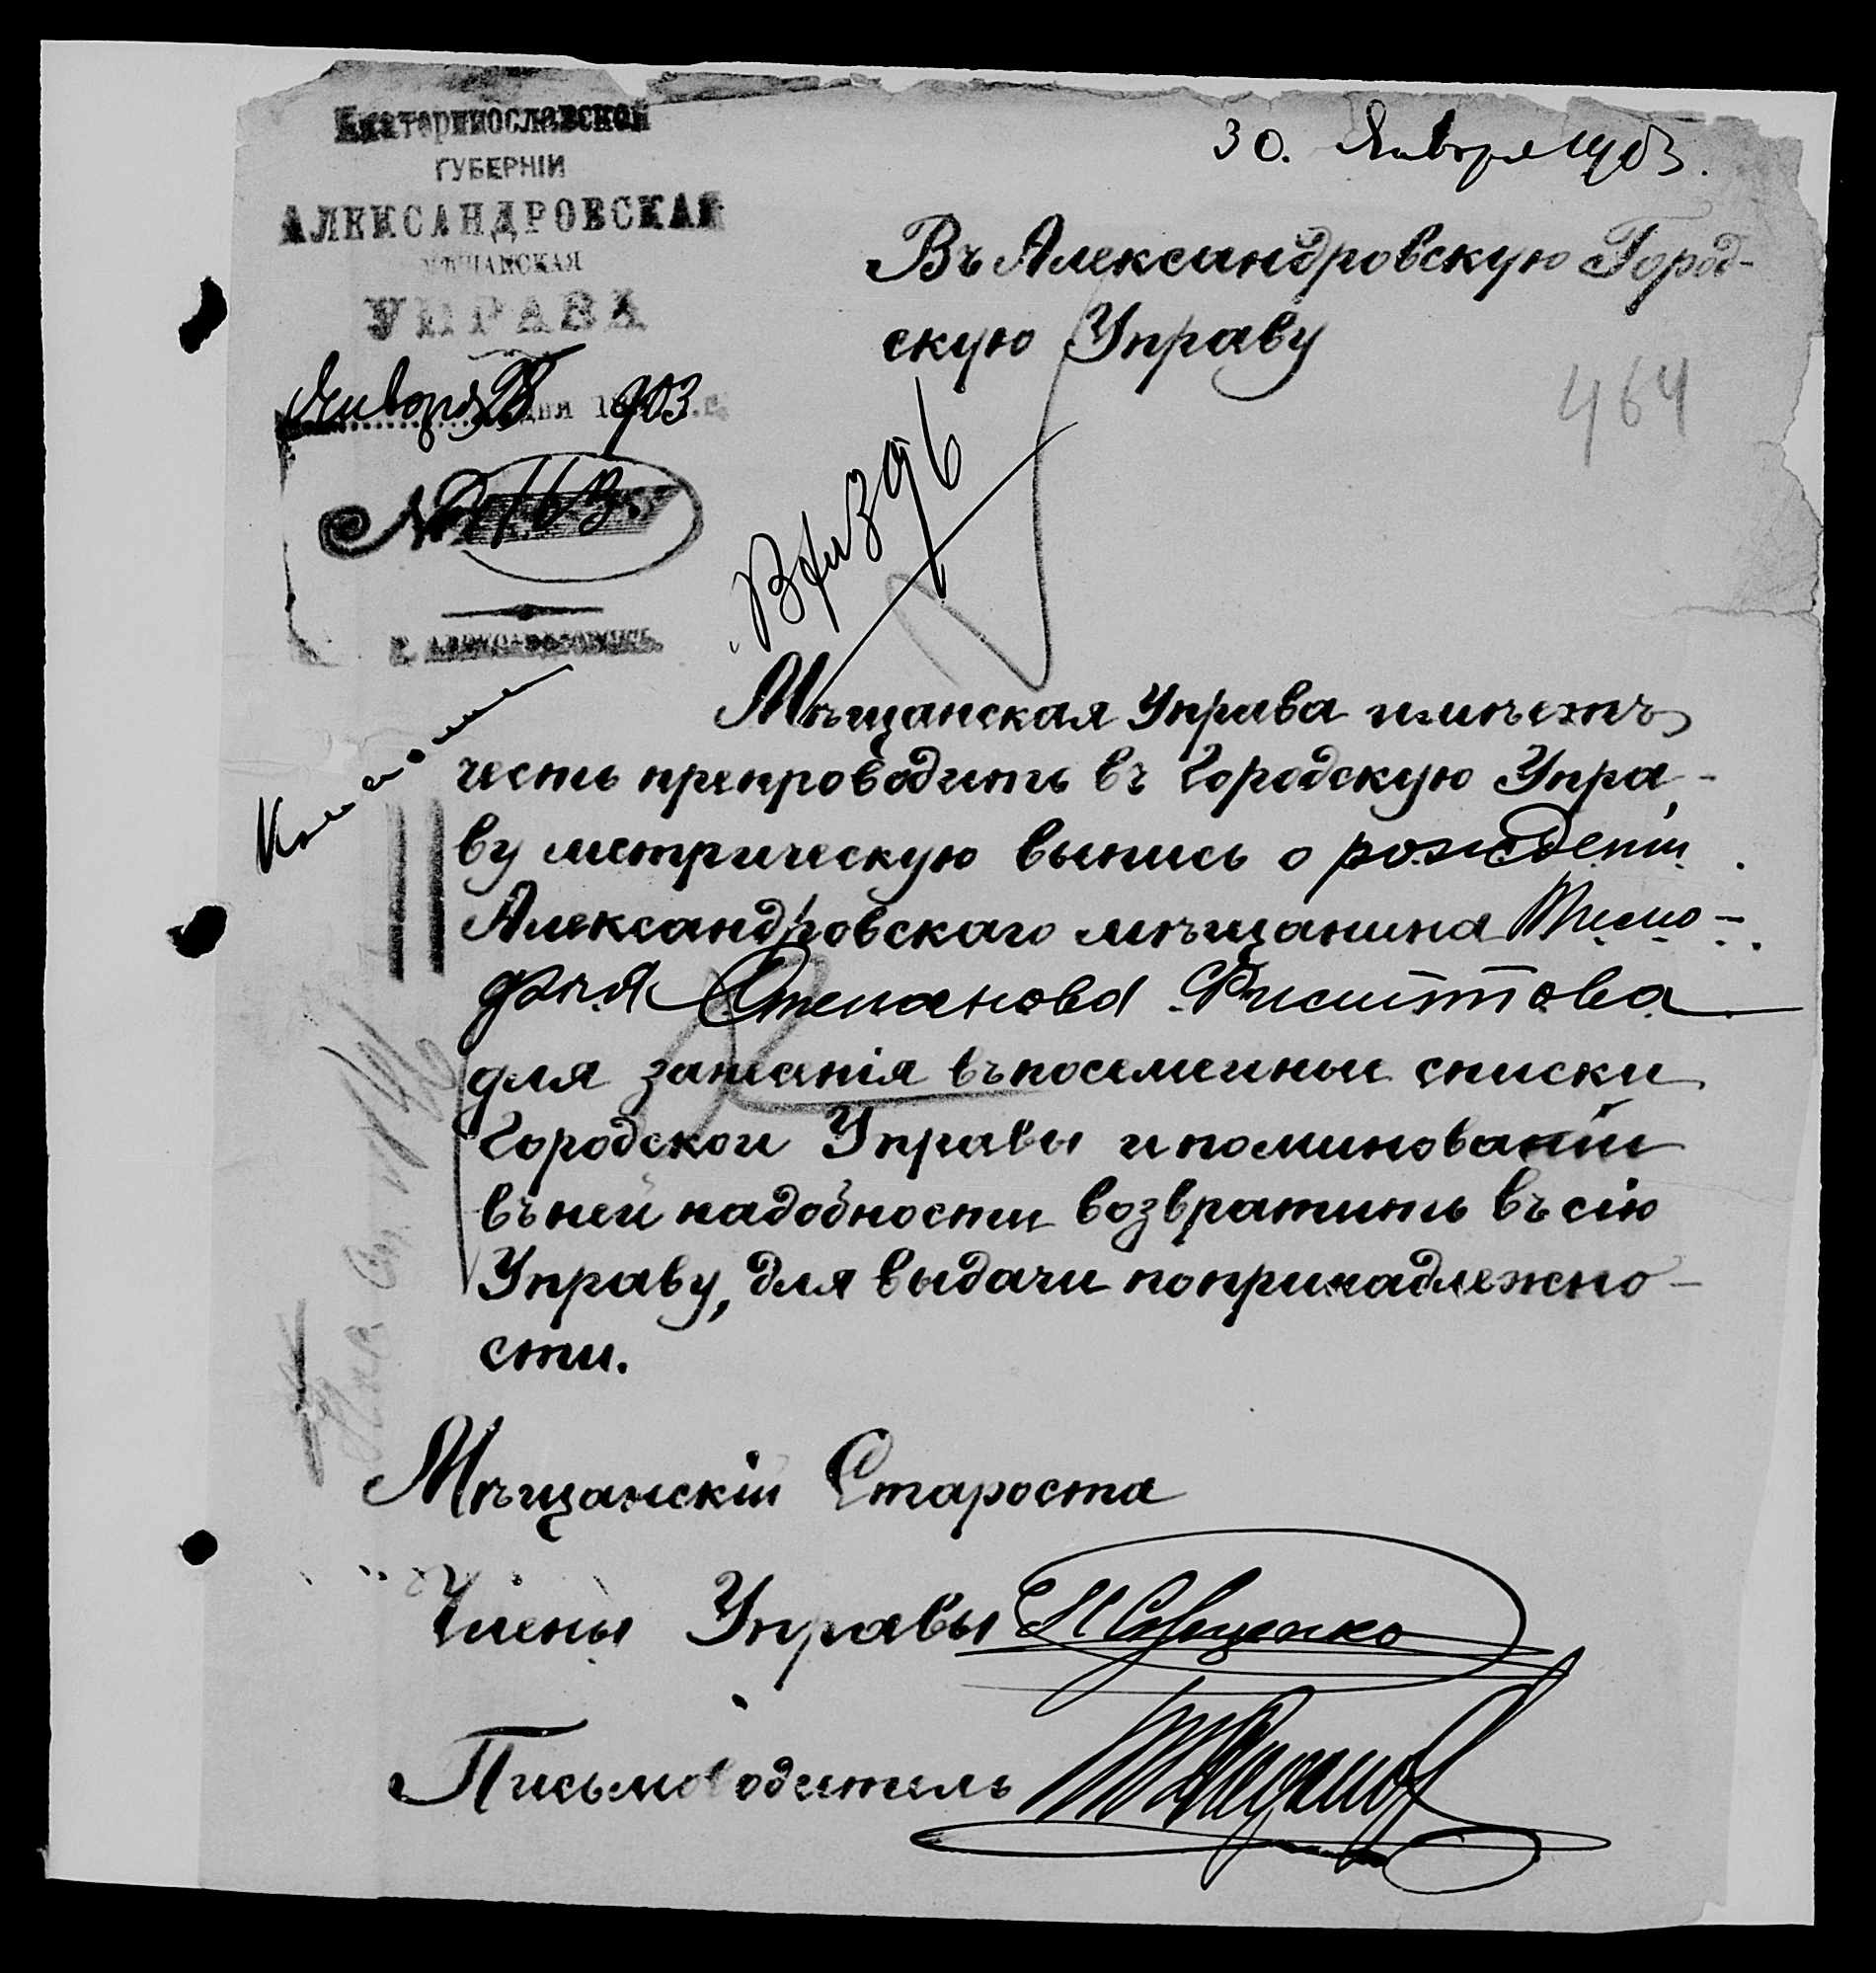 Екатеринославской
ГУБЕРНІИ
АЛЕКСАНДРОВСКАЯ
МѢЩАНСКАЯ
УПРАВА
Января 28 дня 1903 г.
№ 163
Г. АЛЕКСАНДРОВСКЪ.
30. Января 1903.
Въ Александровскую Город-
скую Управу
464
Вх № 396
Мѣщанская Управа имѣетъ
честь препроводить въ Городскую Упра-
ву метрическую выпись о рожденіи
Александровскаго мѣщанина Тимо-
фея Степанова
для занесенія въ посемейные списки
Городской Управы и по минованіи
въ ней надобности возвратить въ сію
Управу, для выдачи по принадлежно-
сти.
Мѣщанскій Староста
Члены Управы
Письмоводитель